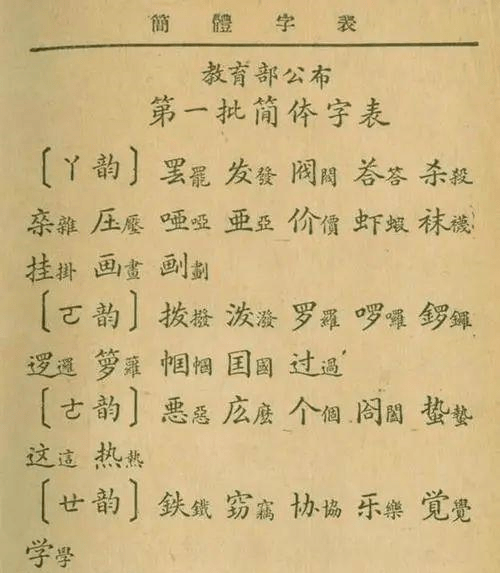 簡體字表
教育部公布
第一批简体字表
〔ㄚ韵〕 罢罷 发發 阀閥 荅答 杀殺
杂雜 压壓 哑啞 亚亞 价價 虾蝦 袜襪
挂掛 画畫 划劃
〔ㄛ韵〕 拨撥 泼潑 罗羅 啰囉 锣鑼
逻邏 箩籮 帼幗 国國 过過
〔ㄜ韵〕 恶惡 庅麼 个個 阁閣 蛰蟄
这這 热熱
〔ㄝ韵〕 鉄鐵 窃竊 协協 乐樂 觉覺
学學